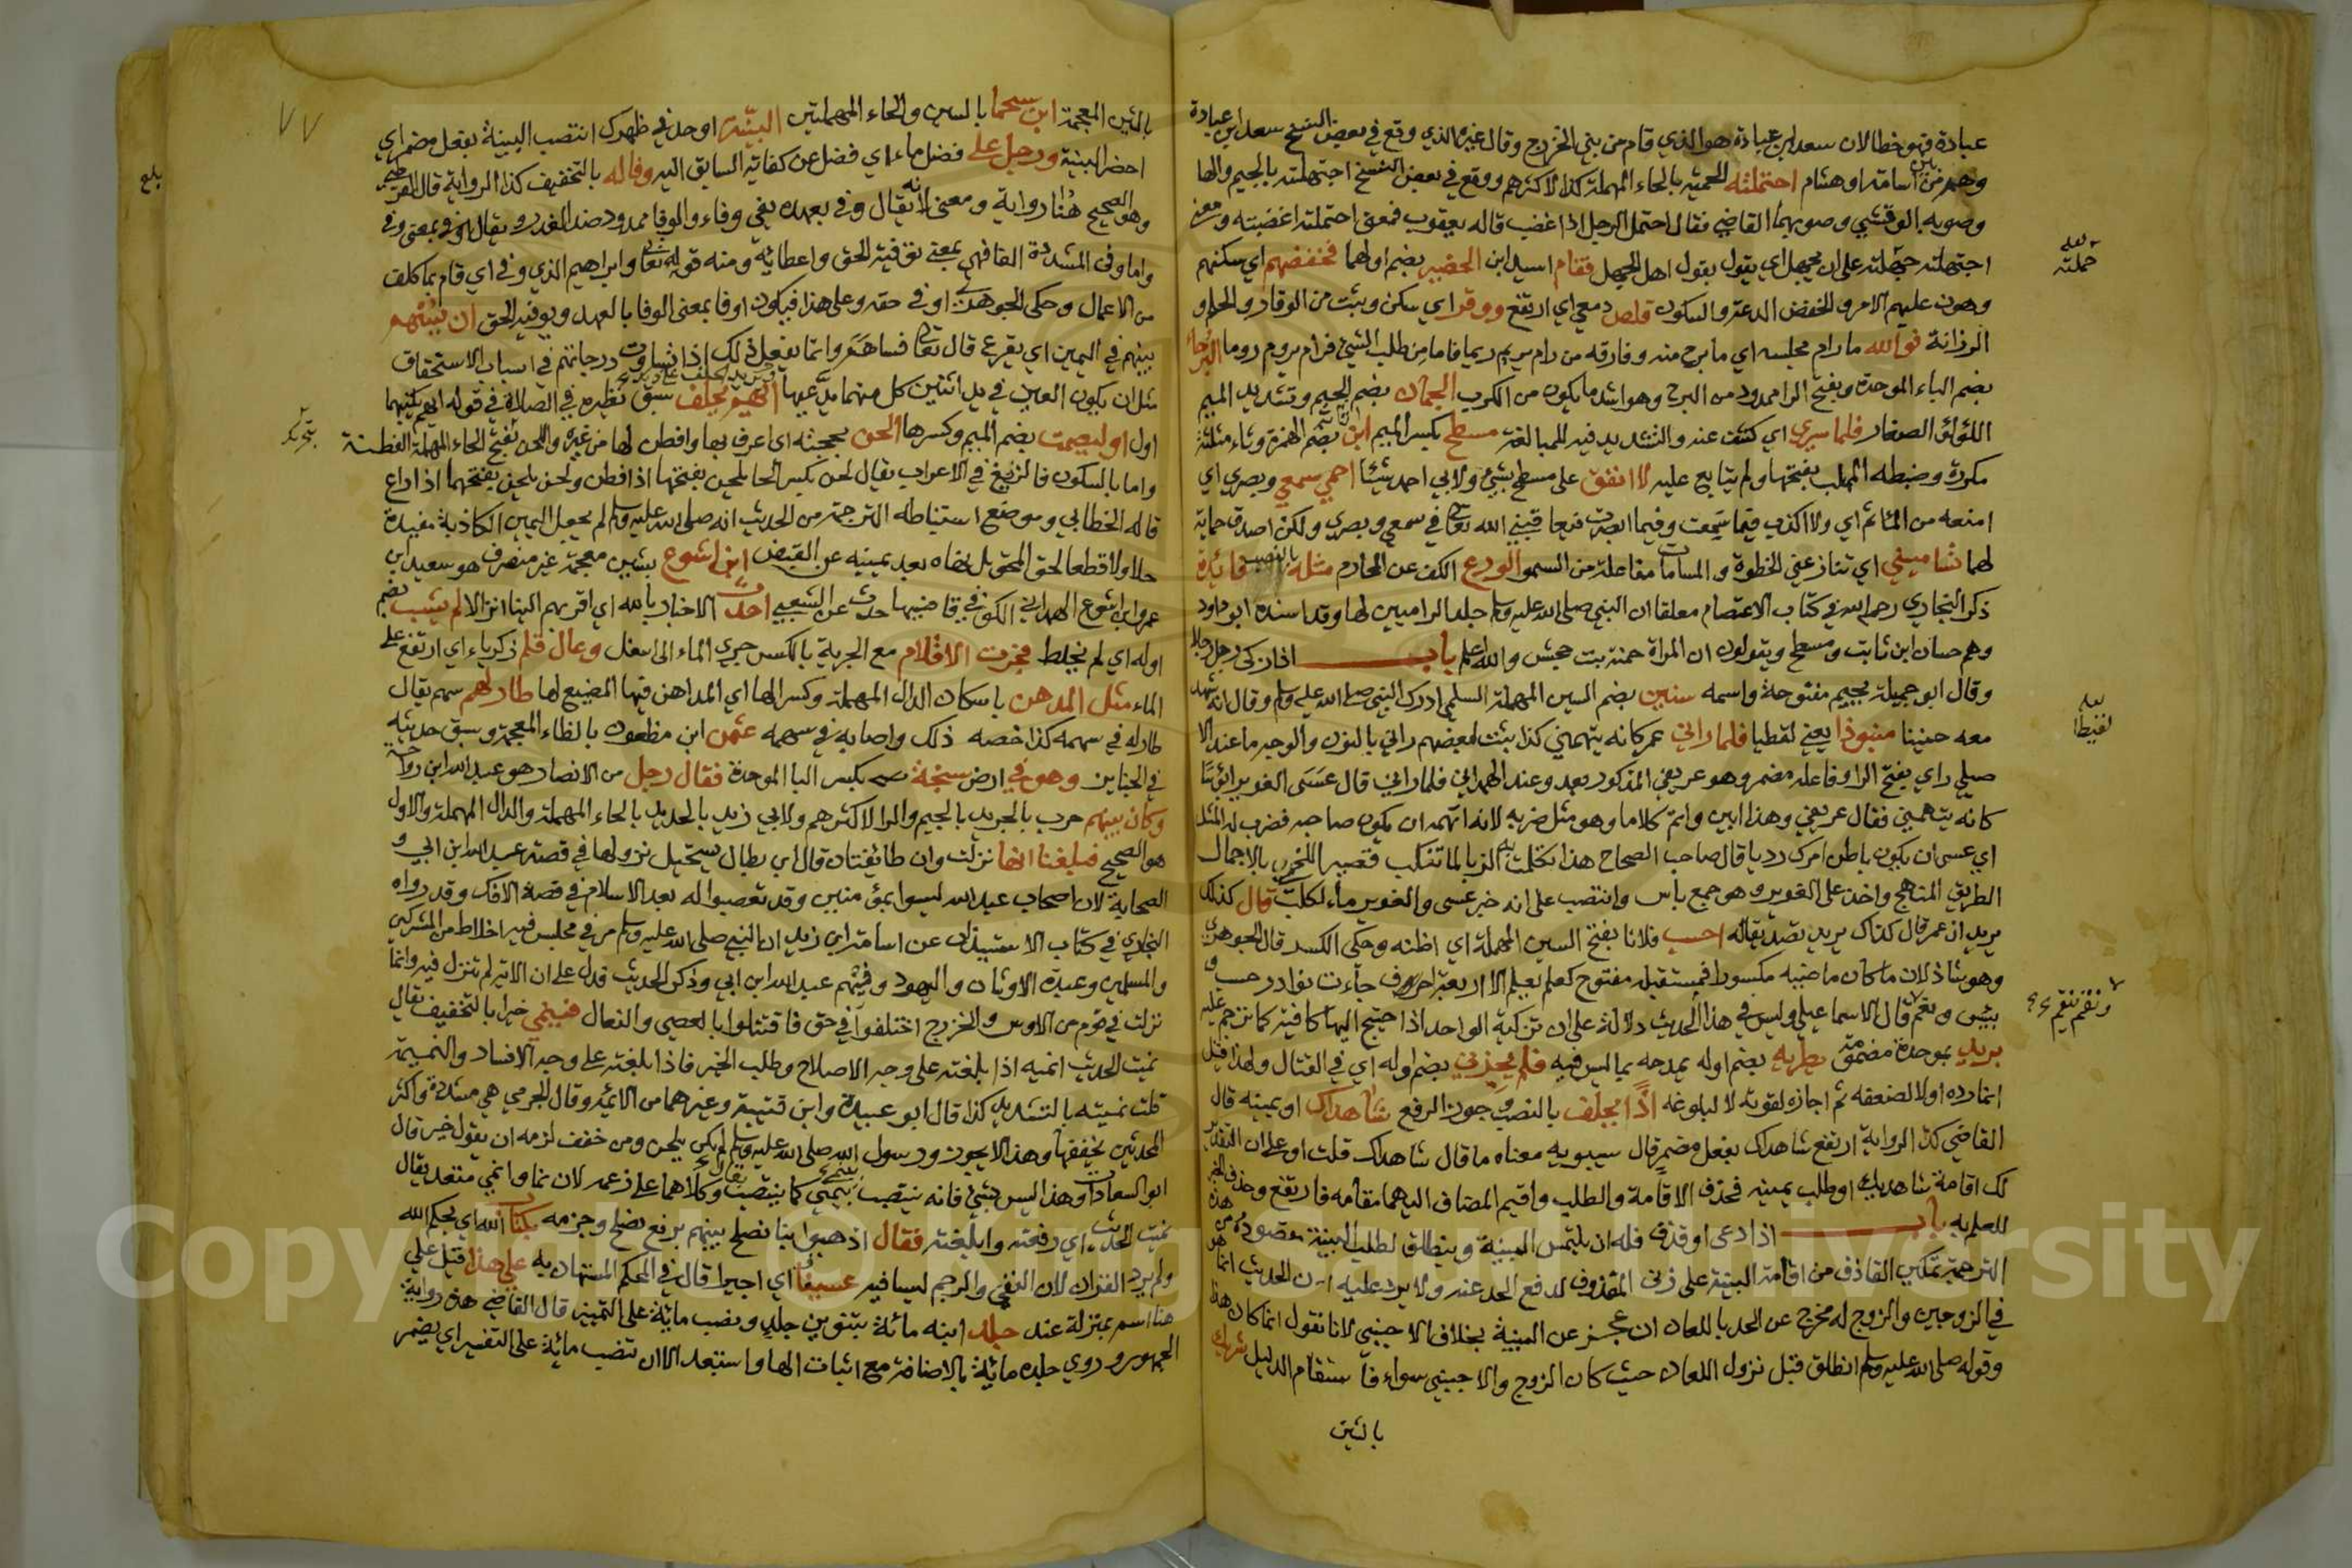 عبادة فهو خطا لان سعد ابن عبادة هو الذي قام من بني الخزرج وقال غيره الذي وقع في بعض النسخ سعد ابن عبادة
وهم من أسامة او هشام احتملته الحمية بالحاء المهملة كذا لاكثرهم ووقع في بعض النسخ اجتهلته بالجيم والها
وصوبه الوقشي وصوبهما القاضي فقال احتمل الرجل اذا غضب قاله يعقوب فمعنى احتملته اغضبته ومعنى
اجتهلته جهلته على ان يجهل اي يقول بقول اهل الجهل فقام اسيد ابن الحضير بضم اولهما فخفضهم اي سكنهم
وهون عليهم الامر والخفض الدعة والسكون قلص دمعي اي ارتفع ووقر اي سكن وثبت من الوقار والحلم و
الرزانة فوالله ما رام مجلسه اي ما برح منه وفارقه من رام يريم ريما فاما من طلب الشيء فرام يروم روما البرحاء
بضم الباء الموحدة وبفتح الرا ممدود من البرح وهو اشد ما يكون من الكرب الجمان بضم الجيم وتشديد الميم
اللؤلؤ الصغار فلما سري اي كشف عنه والتشديد فيه للمبالغة مسطح بكسر الميم ابن اثاثة بضم الهمزة وثاء مثلثة
مكررة وضبطه المهلب بفتحها ولم يتابع عليه لا انفق على مسطح بشيء ولابي احمد شيئا احمي سمعي وبصري اي
امنعه من المآثم اي ولا اكذب فيما سمعت وفيما ابصرت فيعاقبني الله تعالى في سمعي وبصري ولكن اصدق حماية
لهما تساميني اي تنازعني الحظوة والمساماة مفاعلة من السمو الورع الكف عن المحارم مثله بالنصب فائدة
ذكر البخاري رحمه الله في كتاب الاعتصام معلقا ان النبي صلى الله عليه وسلم جلد الراميين لها وقد اسنده ابو داود
وهم حسان ابن ثابت ومسطح ويقولون ان المراة حمنة بنت جحش والله اعلم باب اذا زكى رجل رجلا
وقال ابو جميلة بجيم مفتوحة واسمه سنين بضم السين المهملة السلمي ادرك النبي صلى الله عليه وسلم وقال انه شهد
معه حنينا منبوذا يعني لقطيا فلما راني عمر كانه يتهمني كذا ثبت لبعضهم راني بالنون والوجه ما عند الا
صيلي راي بفتح الرا وفاعله مضمر وهو عريفي المذكور بعد وعند الهمداني فلما راني قال عسى الغوير ابؤسا
كانه يتهمني فقال عريفي وهذا ابين واتم كلاما وهو مثل ضربه لانه اتهمه ان يكون صاحبه فضرب له المثل
اي عسى ان يكون باطن امرك رديا قال صاحب الصحاح هذا تكلمت به الزبا لما تنكب قصير اللخمي بالاجمال
الطريق المنهج واخذ على الغوير وهو جمع بأس وانتصب على انه خبر عسى والغوير ماء لكلب قال كذلك
يريد ان عمر قال كذاك يريد تصديقاله احسب فلانا بفتح السين المهملة اي اظنه وحكى الكسر قال الجوهري
وهو شاذ لان ما كان ماضيه مكسورا فمستقبله مفتوح كعلم يعلم الا اربعة احرف جاءت نوادر حسب و
يئس ونعم قال الاسماعيلي وليس في هذا الحديث دلالة على ان تزكية الواحد اذا احتيج اليها كافية كما ترجم عليه
بريد بموحدة مضمومة يطريه بضم اوله يمدحه بما ليس فيه فلم يجزني بضم اوله اي في القتال ولهذا قيل
انما رده اولا لضعفه ثم اجازه لقوته لا لبلوغه اذًا يحلف بالنصب وجوز الرفع شاهداك او يمينه قال
القاضي كذا الرواية ارتفع شاهداك بفعل مضمر قال سيبويه معناه ما قال شاهداك قلت او على ان التقدير
لك اقامة شاهديك او طلب يمينه فحذف الاقامة والطلب واقيم المضاف اليهما مقامه فارتفع وحذف الخبر
للعلم به باب اذا ادعى او قذف فله ان يلتمس البينة وينطلق لطلب البينة مقصود من هذه
الترجمة تمكين القاذف من اقامة البينة على زنى المقذوف لدفع الحد عنه ولا يرد عليه ان الحديث انما هو
في الزوجين والزوج له مخرج عن الحد باللعان ان عجز عن البينة بخلاف الاجنبي لانا نقول انما كان هذا
وقوله صلى الله عليه وسلم انطلق قبل نزول اللعان حيث كان الزوج والاجنبي سواء فاستقام الدليل شريك
بالشين
لعله حملته
لعله لقيطا
ونقم ينقم
بالشين المعجمة ابن سحما بالسين والحاء المهملتين البينة او حد في ظهرك انتصب البينة بفعل مضمر اي
احضر البينة ورجل على فضل ماء اي فضل عن كفاية السابق اليه وفا له بالتخفيف كذا الرواية قال القرطبي
وهو الصحيح هنا رواية ومعنى لانه يقال وفى بعهده يفي وفاء والوفا ممدود ضد الغدر ويقال اوفى بمعنى وفى
واما وفى المشددة الفا فهي بمعنى توفية الحق واعطائه ومنه قوله تعالى وابراهيم الذي وفى اي قام بما كلف
من الاعمال وحكى الجوهري اوفى حقه وعلى هذا فيكون اوفا بمعنى الوفا بالعهد وتوفية الحق ان يسهم
بينهم في اليمين اي يقرع قال تعالى فساهم وانما يفعل ذلك اذا تساوت درجاتهم في اسباب الاستحقاق
مثل ان يكون العين في يد اثنين كل منهما يدعيها ايهم يحلف سبق نظيره في الصلاة في قوله ايهم يكتبها
اول او ليصمت بضم الميم وكسرها الحن بحجته اي اعرف بها وافطن لها من غيره واللحن بفتح الحاء المهملة الفطنة
واما بالسكون فالزيغ في الاعراب يقال لحن بكسر الحا يلحن بفتحها اذا فطن ولحن يلحن بفتحهما اذا زاغ
قاله الخطابي وموضع استنباطه الترجمة من الحديث انه صلى الله عليه وسلم لم يجعل اليمين الكاذبة مفيدة
حلا ولا قطعا لحق المحق بل نهاه بعد يمينه عن القبض ابن اشوع بشين معجمة غير منصرف هو سعيد ابن
عمرو ابن اشوع الهمداني الكوفي قاضيها حدث عن الشعبي احدث الاخبار بالله اي اقربهم الينا انزالا لم يشب بضم
اوله اي لم يخلط فجرت الاقلام مع الجرية بالكسر جري الماء الى اسفل وعال قلم زكرياء اي ارتفع على
الماء مثل المدهن باسكان الدال المهملة وكسر الها اي المداهن فيها المضيع لها طار لهم سهم يقال
طار له في سهمه كذا خصه ذلك واصابه في سهمه عثمن ابن مظعون بالظاء المعجمة وسبق حديثه
في الجنايز وهو في ارض سبخة بكسر البا الموحدة فقال رجل من الانصار هو عبد الله ابن رواحة
وكان بينهم حرب بالجريد بالجيم والرا لاكثرهم ولابي زيد بالحديد بالحاء المهملة والدال المهملة والاول
هو الصحيح فبلغنا انها نزلت وان طائفتان قال ابن بطال يستحيل نزولها في قصة عبد الله ابن ابي و
الصحابة لان اصحاب عبد الله ليسوا بمؤمنين وقد تعصبوا له بعد الاسلام في قصة الافك وقد رواه
البخاري في كتاب الاستئذان عن اسامة ابن زيد ان النبي صلى الله عليه وسلم مر في مجلس فيه اخلاط من المشركين
والمسلمين وعبدة الاوثان واليهود وفيهم عبد الله ابن ابي وذكر الحديث فدل على ان الاية لم تنزل فيه وانما
نزلت في قوم من الاوس والخزرج اختلفوا في حق فاقتتلوا بالعصي والنعال فينمي خيرا بالتخفيف يقال
نميت الحديث انميه اذا بلغته على وجه الاصلاح وطلب الخير فاذا بلغته على وجه الافساد والنميمة
قلت نميته بالتشديد كذا قال ابو عبيدة وابن قتيبة وغيرهما من الائمة وقال الجرمي هي مشددة واكثر
المحدثين يخففها وهذا لا يجوز ورسول الله صلى الله عليه وسلم لم يكن يلحن ومن خفف لزمه ان يقول خير قال
ابو السعادات وهذا ليس بشيء فانه ينتصب بينمي كما ينتصب بقال وكلاهما على زعمه لان نما وانمي متعد يقال
نميت الحديث اي رفعته وابلغته فقال اذهبوا بنا نصلح بينهم برفع نصلح وجزمه بكتاب الله اي بحكم الله
ولم يرد القران لان النفي والرجم ليسا فيه عسيفًا اي اجيرا قال في المحكم المستهان به على هذا قيل على
هنا اسم بمنزلة عند جلد ابنه مائة بتنوين جلد ونصب مائة على التمييز قال القاضي هذه رواية
الجمهور وروي جلده مائة بالاضافة مع اثبات الها واستبعد الا ان تنصب مائة على التفسير اي يضمر
بلغ
٧٧
Copyright © King Saud University